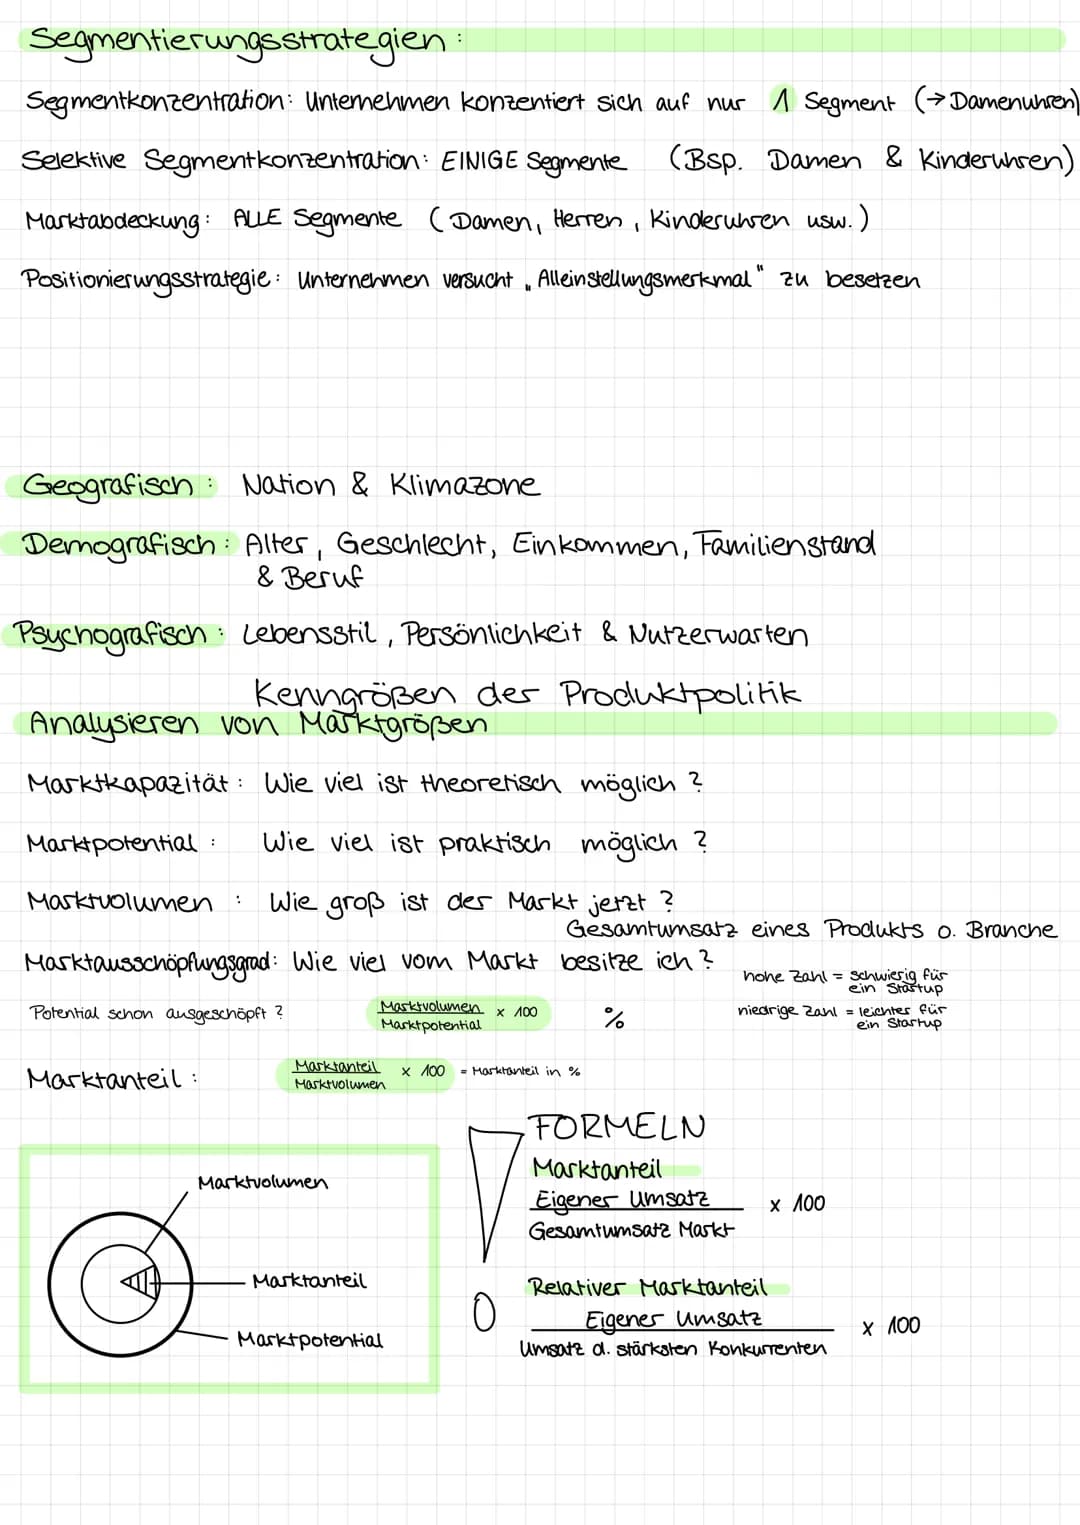 Segmentierungsstrategien:
Segmentkonzentration: Unternehmen konzentiert sich auf nur 1 Segment (→ Damenuhren)
Selektive Segmentkonzentration: EINIGE Segmente (Bsp. Damen & Kinderuhren)
Marktabdeckung: ALLE Segmente (Damen, Herren, Kinderuhren usw.)
Positionierungsstrategie: Unternehmen versucht „Alleinstellungsmerkmal" zu besetzen
Geografisch: Nation & Klimazone
Demografisch: Alter, Geschlecht, Einkommen, Familienstand
& Beruf
Psychografisch: Lebensstil, Persönlichkeit & Nutzerwarten
Kenngrößen der Produktpolitik
Analysieren von Marktgrößen
Marktkapazität: Wie viel ist theoretisch möglich?
Marktpotential: Wie viel ist praktisch möglich?
Marktvolumen: Wie groß ist der Markt jetzt?
Gesamtumsatz eines Produkts o. Branche
Marktausschöpfungsgrad: Wie viel vom Markt besitze ich?
hohe Zahl = schwierig für
ein Startup
Potential schon ausgeschöpft?
Marktvolumen x 100
Marktpotential
%
niedrige Zahl = leichter für
ein Startup
Marktanteil:
Marktanteil x 100 = Marktanteil in %
Marktvolumen
FORMELN
Marktanteil
Eigener Umsatz x 100
Gesamtumsatz Markt
Relativer Marktanteil
Eigener Umsatz x 100
Umsatz d. stärksten Konkurrenten
Marktvolumen
Marktanteil
Marktpotential